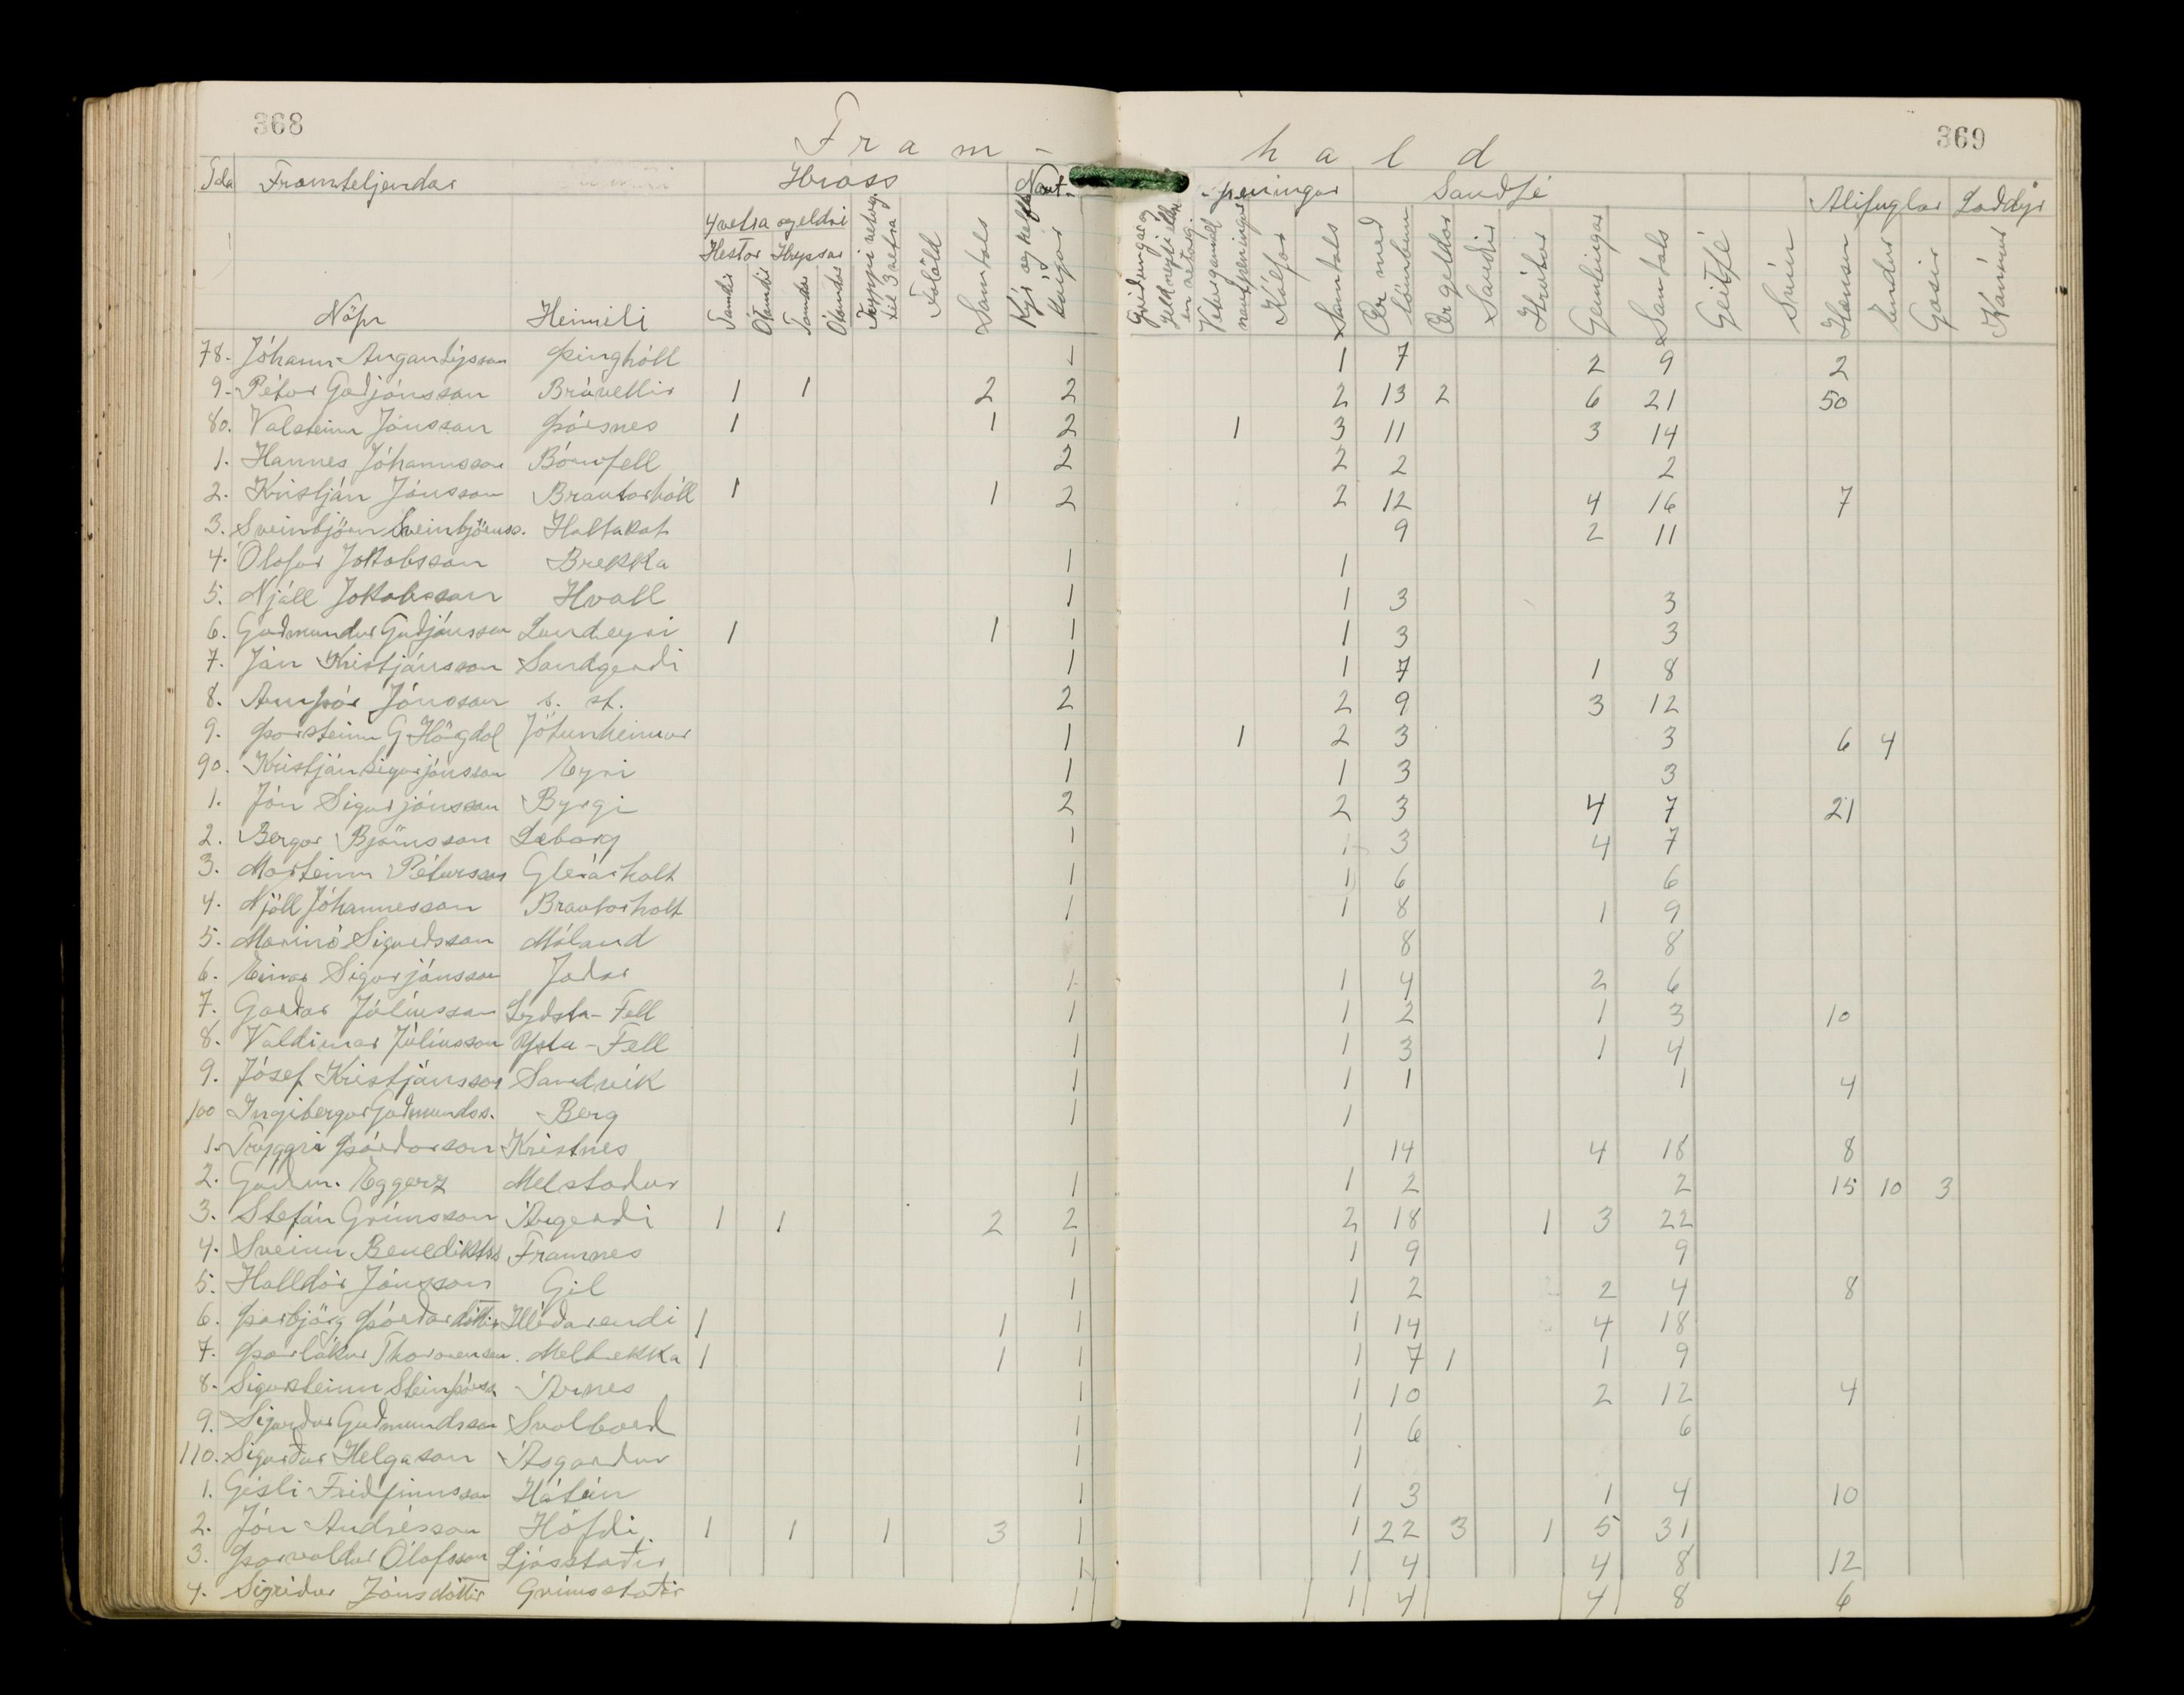 368
369
Fram-
hald
Tala Framteljendur Hross Naut- -peningur Sauðfé Alifuglar Loðdýr
4 vetra og eldri
Hestar Hryssur
Nöfn Heimili Tamdir Ótamdir Tamdar Ótamdar Tryppi veturg. til 3 vetra Folöld Samtals Kýr og kelfdar kvígur Griðungar og geldneyti eldri en veturg. Veturgamall nautpeningur Kálfar Samtals Ær með lömbum Ær geldar Sauðir Hrútar Gemlingar Samtals Geitfé Svín Hænsn Endur Gæsir Kanínur
78. Jóhann Angantýsson Þinghóll 1 1 7 2 9 2
9. Pétur Guðjónsson Brávellir 1 1 2 2 2 13 2 6 21 50
80. Valsteinn Jónsson Þórsnes 1 1 2 1 3 11 3 14
1. Hannes Jóhannsson Búrfell 2 2 2 2
2. Kristján Jónsson Brautarhóll 1 1 2 2 12 4 16 7
3. Sveinbjörn Sveinbjörnss. Holtakot 9 2 11
4. Ólafur Jakobsson Brekka 1 1
5. Njáll Jakobsson Hvoll 1 1 3 3
6. Guðmundur Guðjónsson Lundeyri 1 1 1 1 3 3
7. Ján Kristjánsson Sandgerði 1 1 7 1 8
8. Arnþór Jónsson s. st. 2 2 9 3 12
9. Þorsteinn G Hörgdal Jötunheimur 1 1 2 3 3 6 4
90. Kristján Sigurjónsson Eyri 1 1 3 3
1. Jón Sigurjónsson Byrgi 2 2 3 4 7 21
2. Bergur Björnsson Sæborg 1 1 3 4 7
3. Marteinn Pétursson Glerárholt 1 1 6 6
4. Njáll Jóhannesson Brautarholt 1 1 8 1 9
5. Marinó Sigurðsson Máland 8 8
6. Einar Sigurjónsson Jaðar 1 1 4 2 6
7. Garðar Júlíusson Syðsta-Fell 1 1 2 1 3 10
8. Valdimar Júlíusson Ysta-Fell 1 1 3 1 4
9. Jósef Kristjánsson Sandvík 1 1 1 1 4
100 Ingibergur Guðmundss. Berg 1 1
1. Tryggvi Þórðarson Kristnes 14 4 18 8
2. Guðm. Eggerz Melstaður 1 1 2 2 15 10 3
3. Stefán Grímsson Árgerði 1 1 2 2 2 18 1 3 22
4. Sveinn Benediktss Framnes 1 1 9 9
5. Halldór Jónsson Gil 1 1 2 2 4 8
6. Þorbjörg Þórðardóttir Hlíðarendi 1 1 1 1 14 4 18
7. Þorlákur Thorarensen. Melbrekka 1 1 1 1 7 1 1 9
8. Sigursteinn Steinþórss. Árnes 1 1 10 2 12 4
9. Sigurður Guðmundsson Svalbarð 1 1 6 6
110. Sigurður Helgason Ásgarður 1 1
1. Gísli Friðfinnsson Hátún 1 1 3 1 4 10
2. Jón Andrésson Höfði 1 1 1 3 1 1 22 3 1 5 31
3. Þorvaldur Ólafsson Ljósstaðir 1 1 4 4 8 12
4. Sigríður Jónsdóttir Grímsstaðir 1 1 4 4 8 6